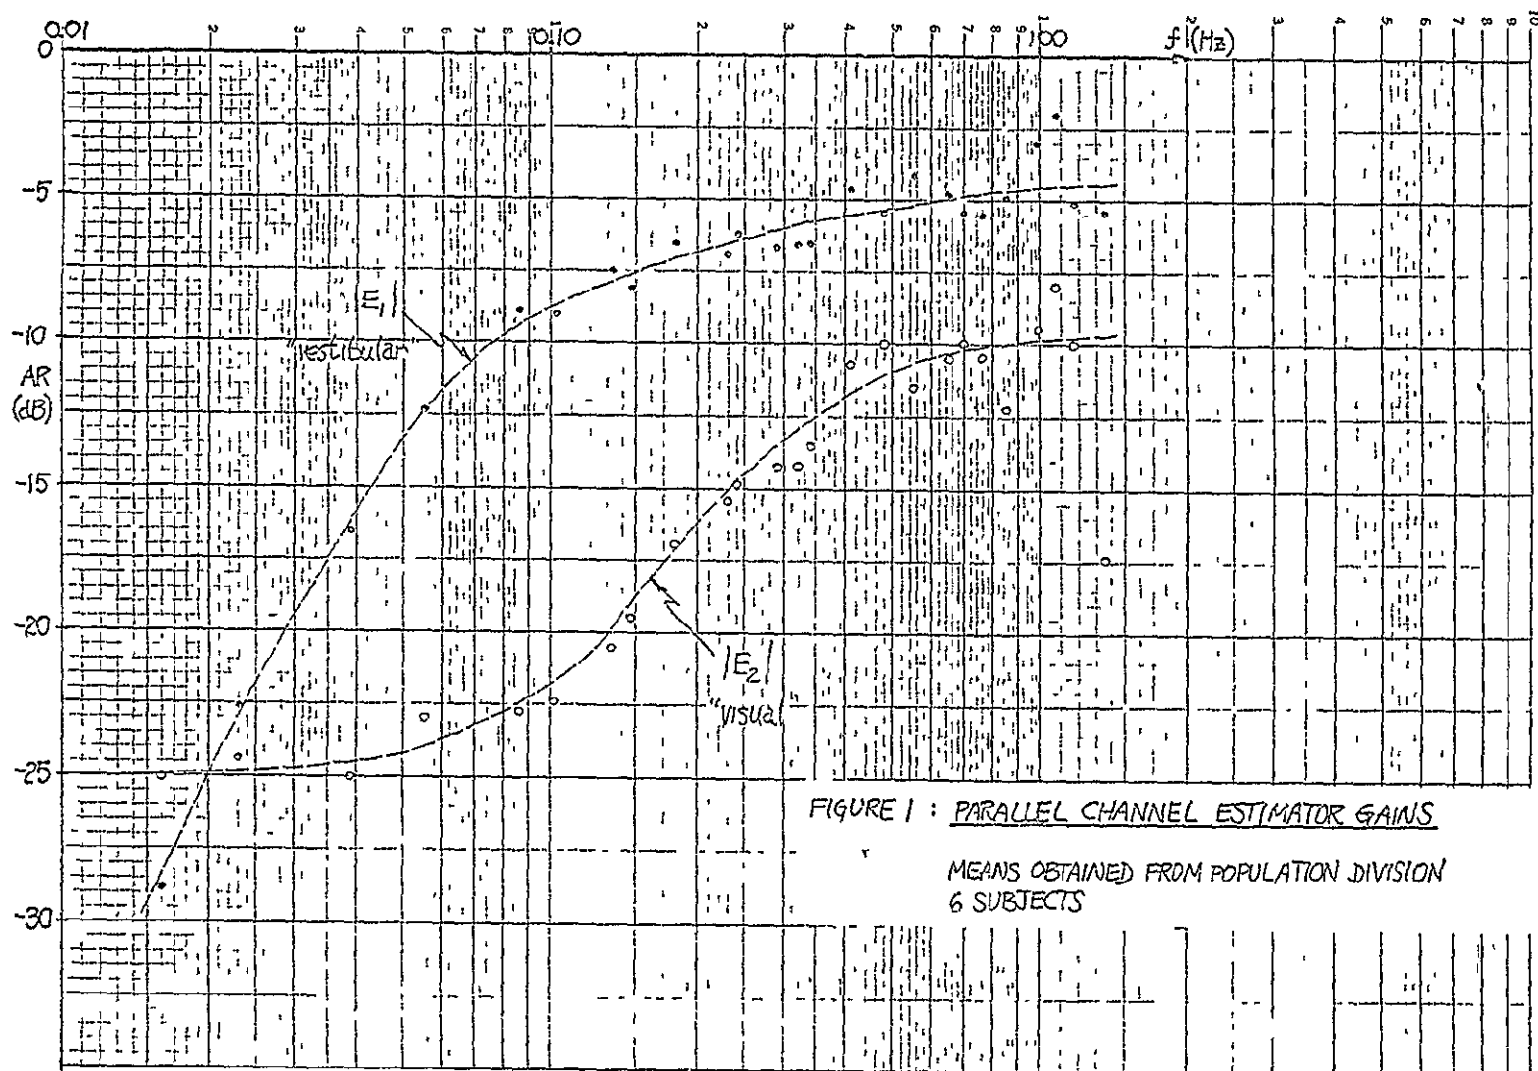 0.01 2 3 4 5 6 7 8 9 0.10 2 3 4 5 6 7 8 9 1.00 f (Hz) 2 3 4 5 6 7 8 9 10
0
-5
-10
AR
(dB)
-15
-20
-25
-30
|E1|
"vestibular"
|E2|
"visual"
FIGURE 1 : PARALLEL CHANNEL ESTIMATOR GAINS
MEANS OBTAINED FROM POPULATION DIVISION
6 SUBJECTS